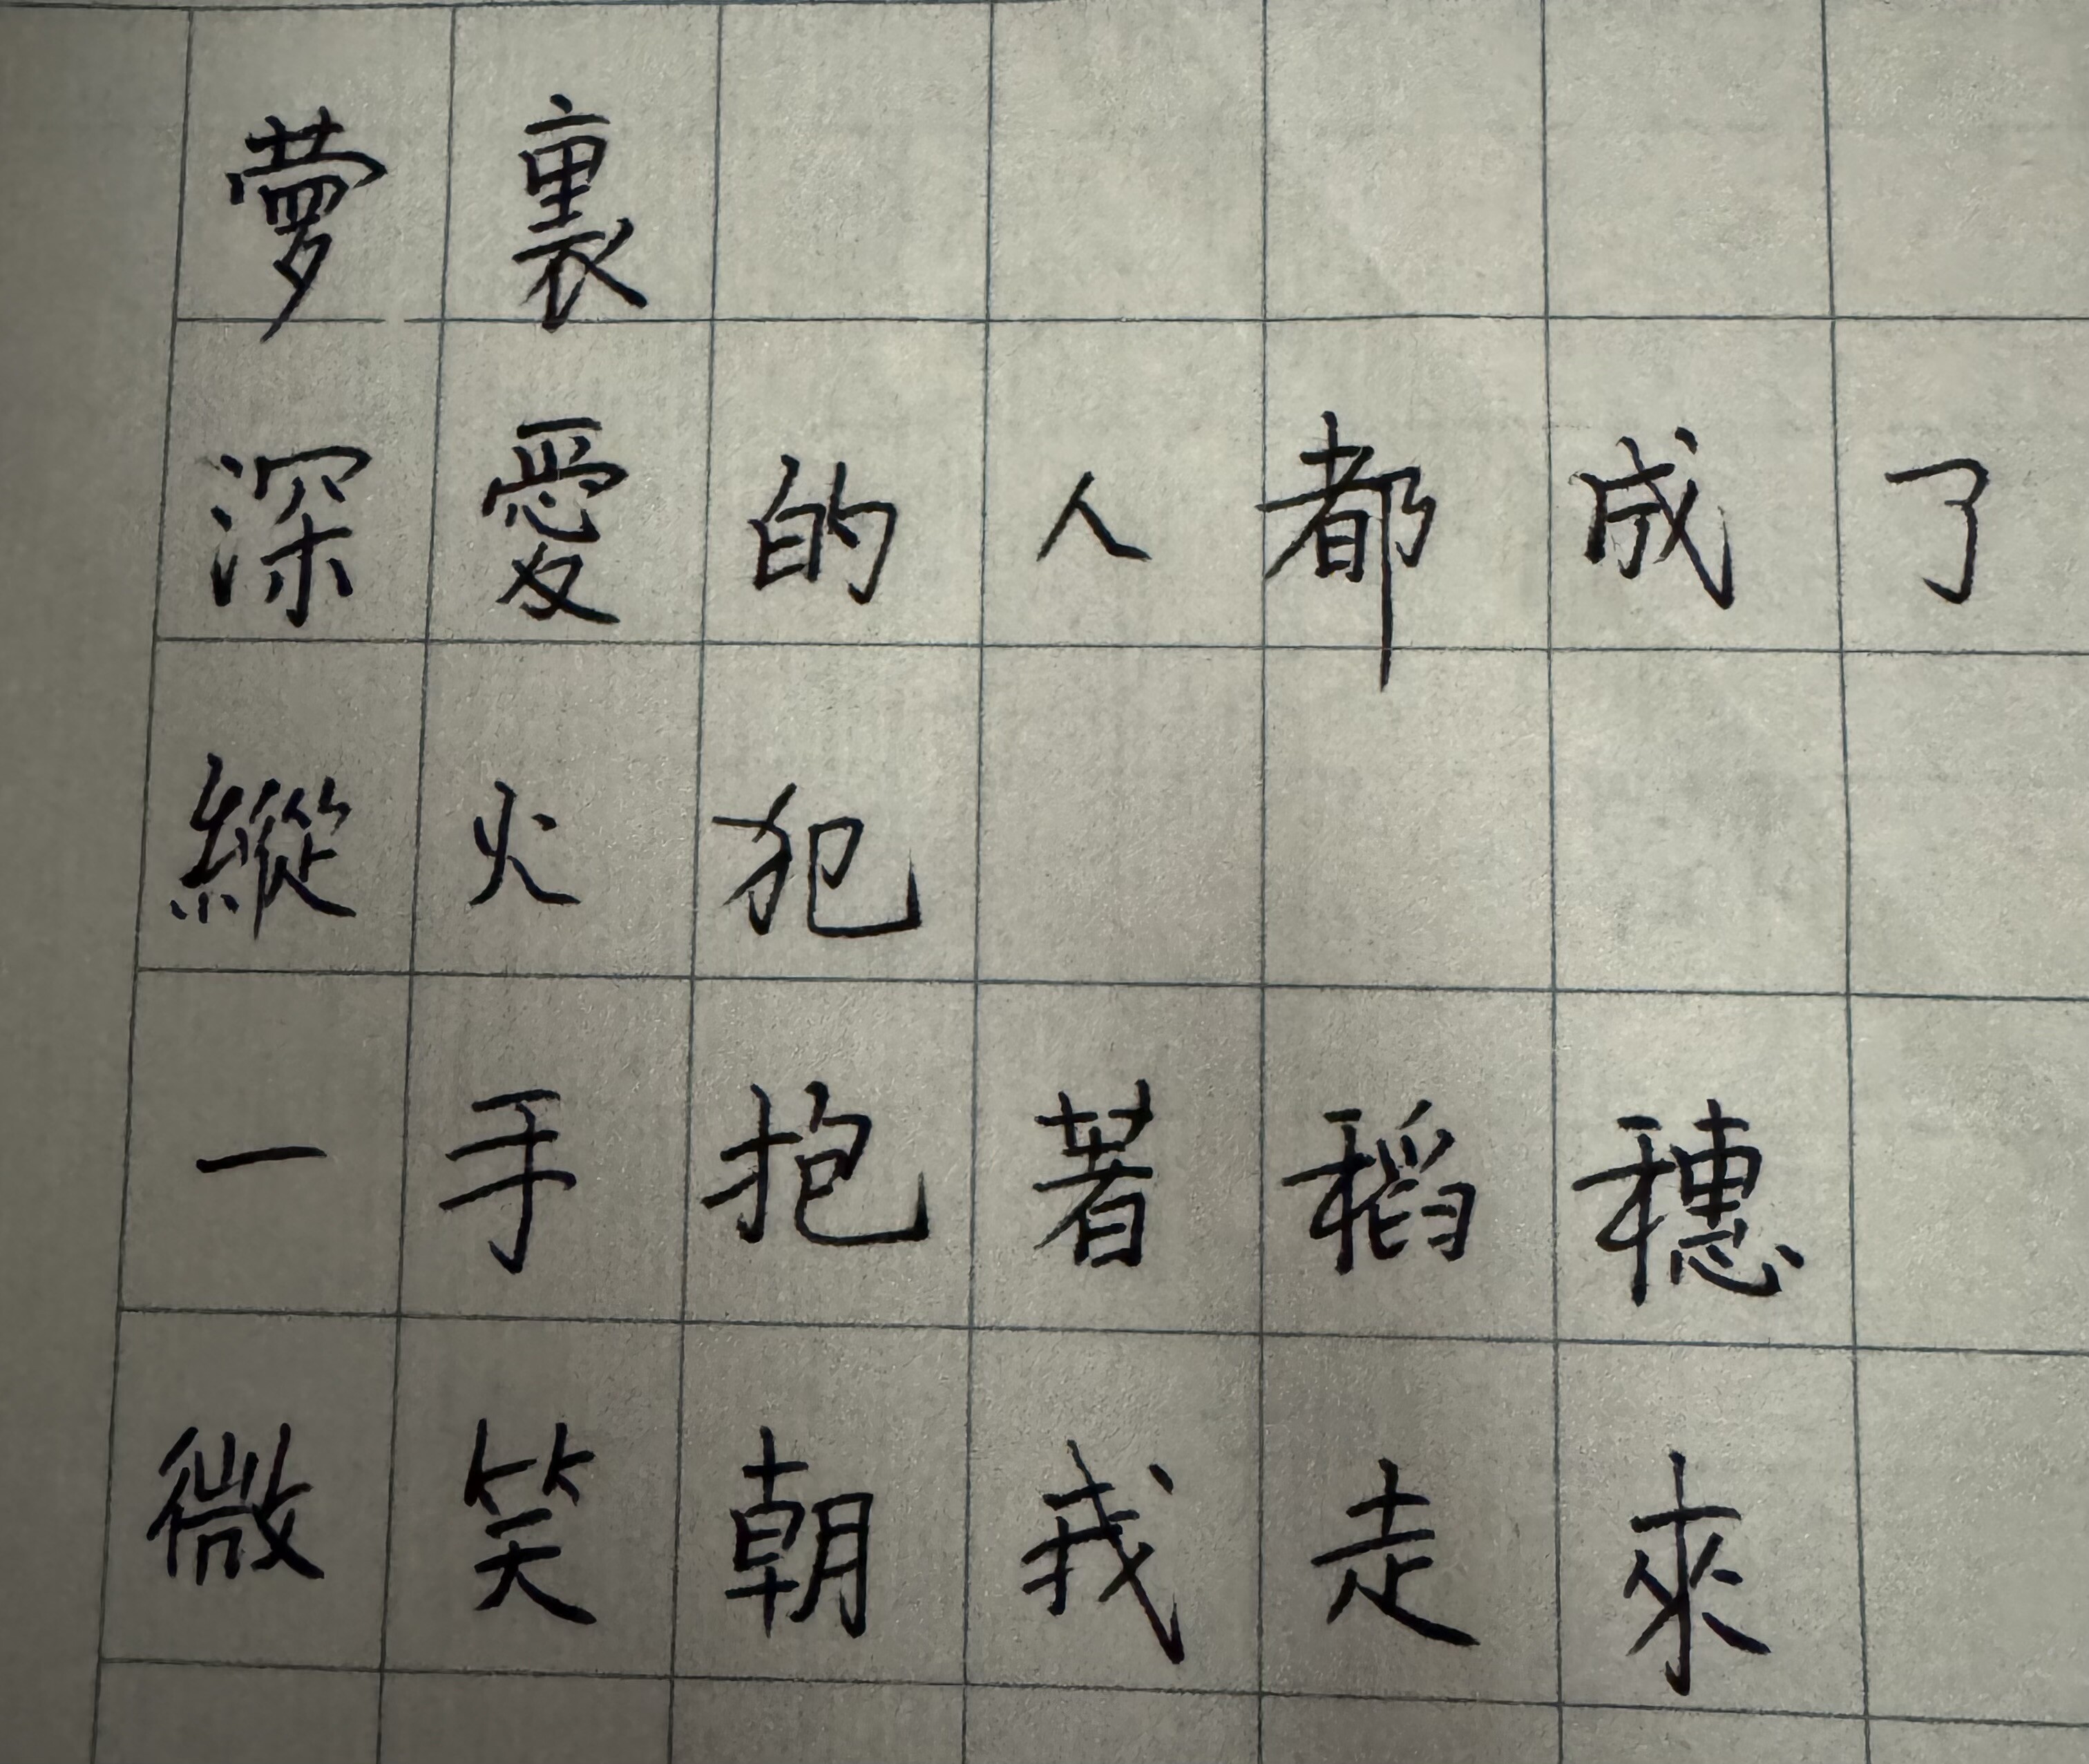 夢裏
深愛的人都成了
縱火犯
一手抱著稻穗
微笑朝我走來